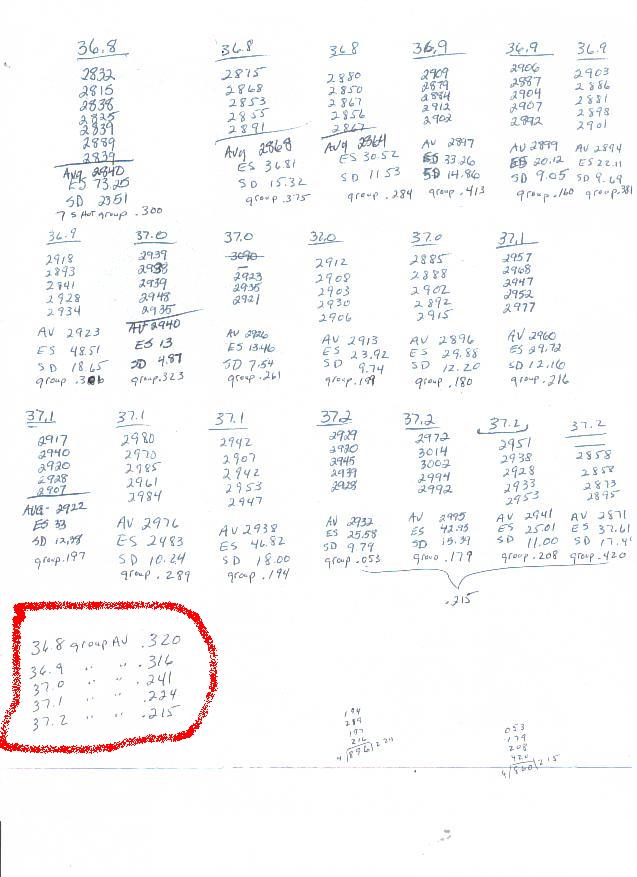 36.8
2832
2815
2838
2825
2839
2889
2839
Avg 2840
ES 73.25
SD 23.51
7 Shot group .300
36.8
2875
2868
2853
2855
2891
Avg 2868
ES 36.81
SD 15.32
group .375
36.8
2880
2850
2867
2856
2867
Avg 2864
ES 30.52
SD 11.53
group .284
36.9
2909
2879
2884
2912
2902
AV 2897
ES 33.26
SD 14.86
group .413
36.9
2906
2887
2904
2907
2892
AV 2899
ES 20.12
SD 9.05
group .160
36.9
2903
2886
2881
2898
2901
AV 2894
ES 22.11
SD 9.69
group .381
36.9
2918
2893
2941
2928
2934
AV 2923
ES 48.51
SD 18.65
group
37.0
2939
2938
2939
2948
2935
AV 2940
ES 13
SD 4.87
group .323
37.0
3090
2923
2935
2921
AV 2926
ES 13.46
SD 7.54
group .261
37.0
2912
2908
2903
2930
2906
AV 2913
ES 23.92
SD 9.74
group .199
37.0
2885
2888
2902
2892
2915
AV 2896
ES 29.88
SD 12.20
group .180
37.1
2957
2968
2947
2952
2977
AV 2960
ES 29.72
SD 12.16
group .216
37.1
2917
2940
2920
2928
2907
AVG - 2922
ES 33
SD 12.38
group .197
37.1
2980
2970
2985
2961
2984
AV 2976
ES 24.83
SD 10.24
group .289
37.1
2942
2907
2942
2953
2947
AV 2938
ES 46.82
SD 18.00
group .194
37.2
2929
2920
2945
2939
2928
AV 2932
ES 25.58
SD 9.79
group .053
37.2
2972
3014
3002
2994
2992
AV 2995
ES 42.93
SD 15.39
group .179
37.2
2951
2938
2928
2933
2953
AV 2941
ES 25.01
SD 11.00
group .208
37.2
2858
2858
2873
2895
AV 2871
ES 37.61
SD 17.4
group .420
.215
36.8 group AV .320
36.9 " " .316
37.0 " " .241
37.1 " " .224
37.2 " " .215
194
289
197
216
4/896/224
053
179
208
420
4/860/215